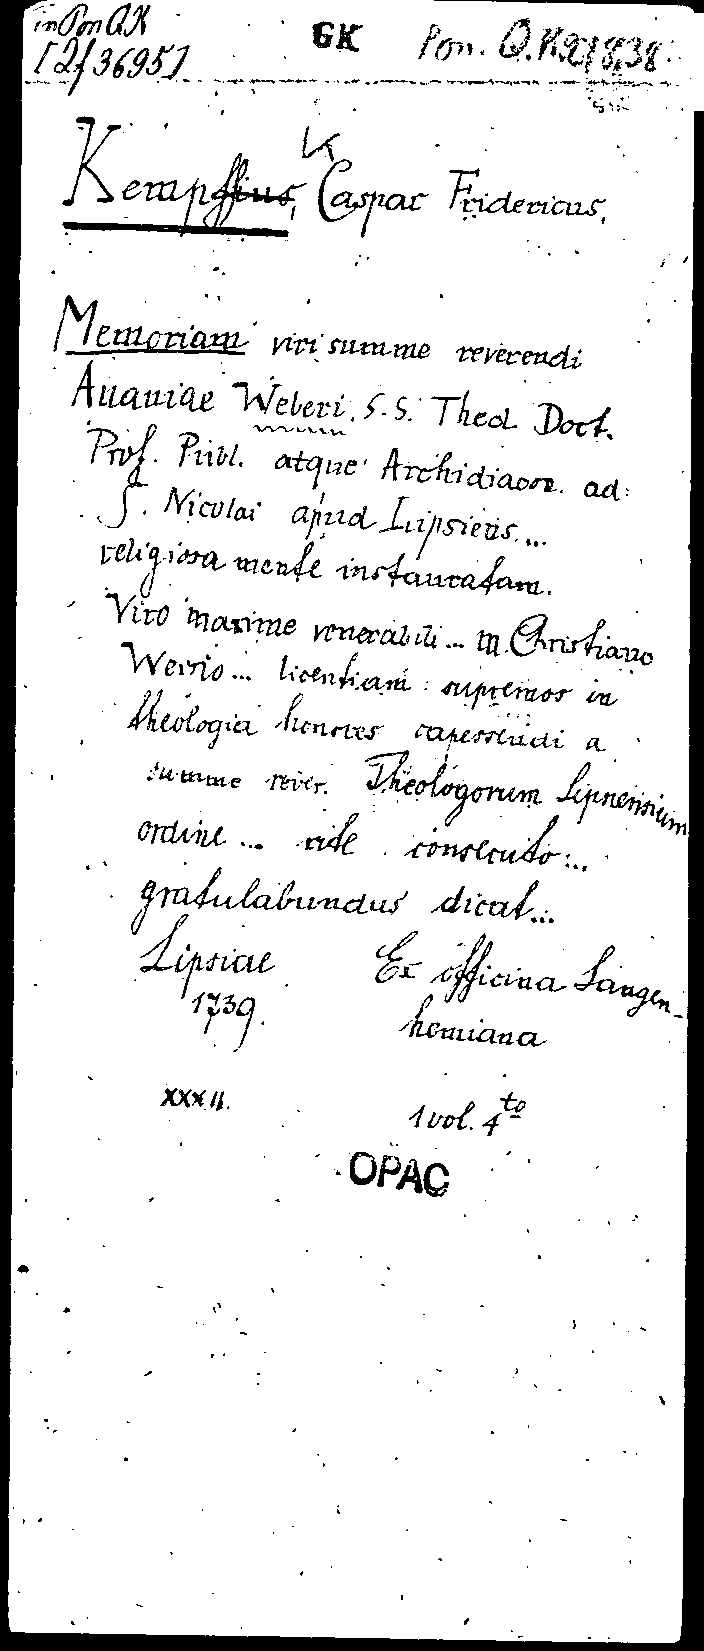 in Pon QK
[2f 3695]
GK
Pon. Q.K. 218,38.
Kempffius, Caspar Fridericus.
Memoriam viri summe reverendi
Ananiae Weberi. S.S. Theol. Doct.
Prof. Publ. atque Archidiacon. ad
S. Nicolai apud Lipsiens...
religiosa mente instauratam.
Viro maxime venerabili... M. Christiano
Weisio... licentiam supremos in
theologia honores capessendi a
summe rever. Theologorum Lipsiensium
ordine... rite consecuto...
gratulabundus dicat...
Lipsiae Ex officina Langen-
1739. hemiana
XXXII. 1 vol. 4to
OPAC